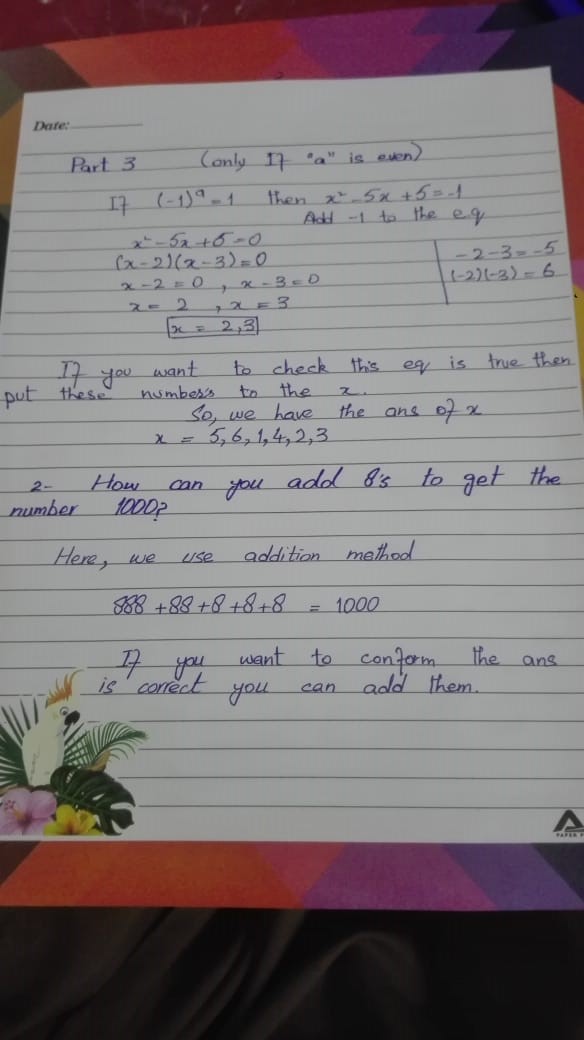 Date:
Part 3 (only If "a" is even)
If (-1)^a = 1 then x² - 5x + 5 = -1
Add -1 to the eq
x² - 5x + 6 = 0
(x-2)(x-3) = 0
x - 2 = 0 , x - 3 = 0
x = 2 , x = 3
x = 2,3
-2-3 = -5
(-2)(-3) = 6
If you want to check this eq is true then
put these number's to the x.
So, we have the ans of x
x = 5,6,1,4,2,3
2- How can you add 8's to get the
number 1000?
Here, we use addition method
888 + 88 + 8 + 8 + 8 = 1000
If you want to conform the ans
is correct you can add them.